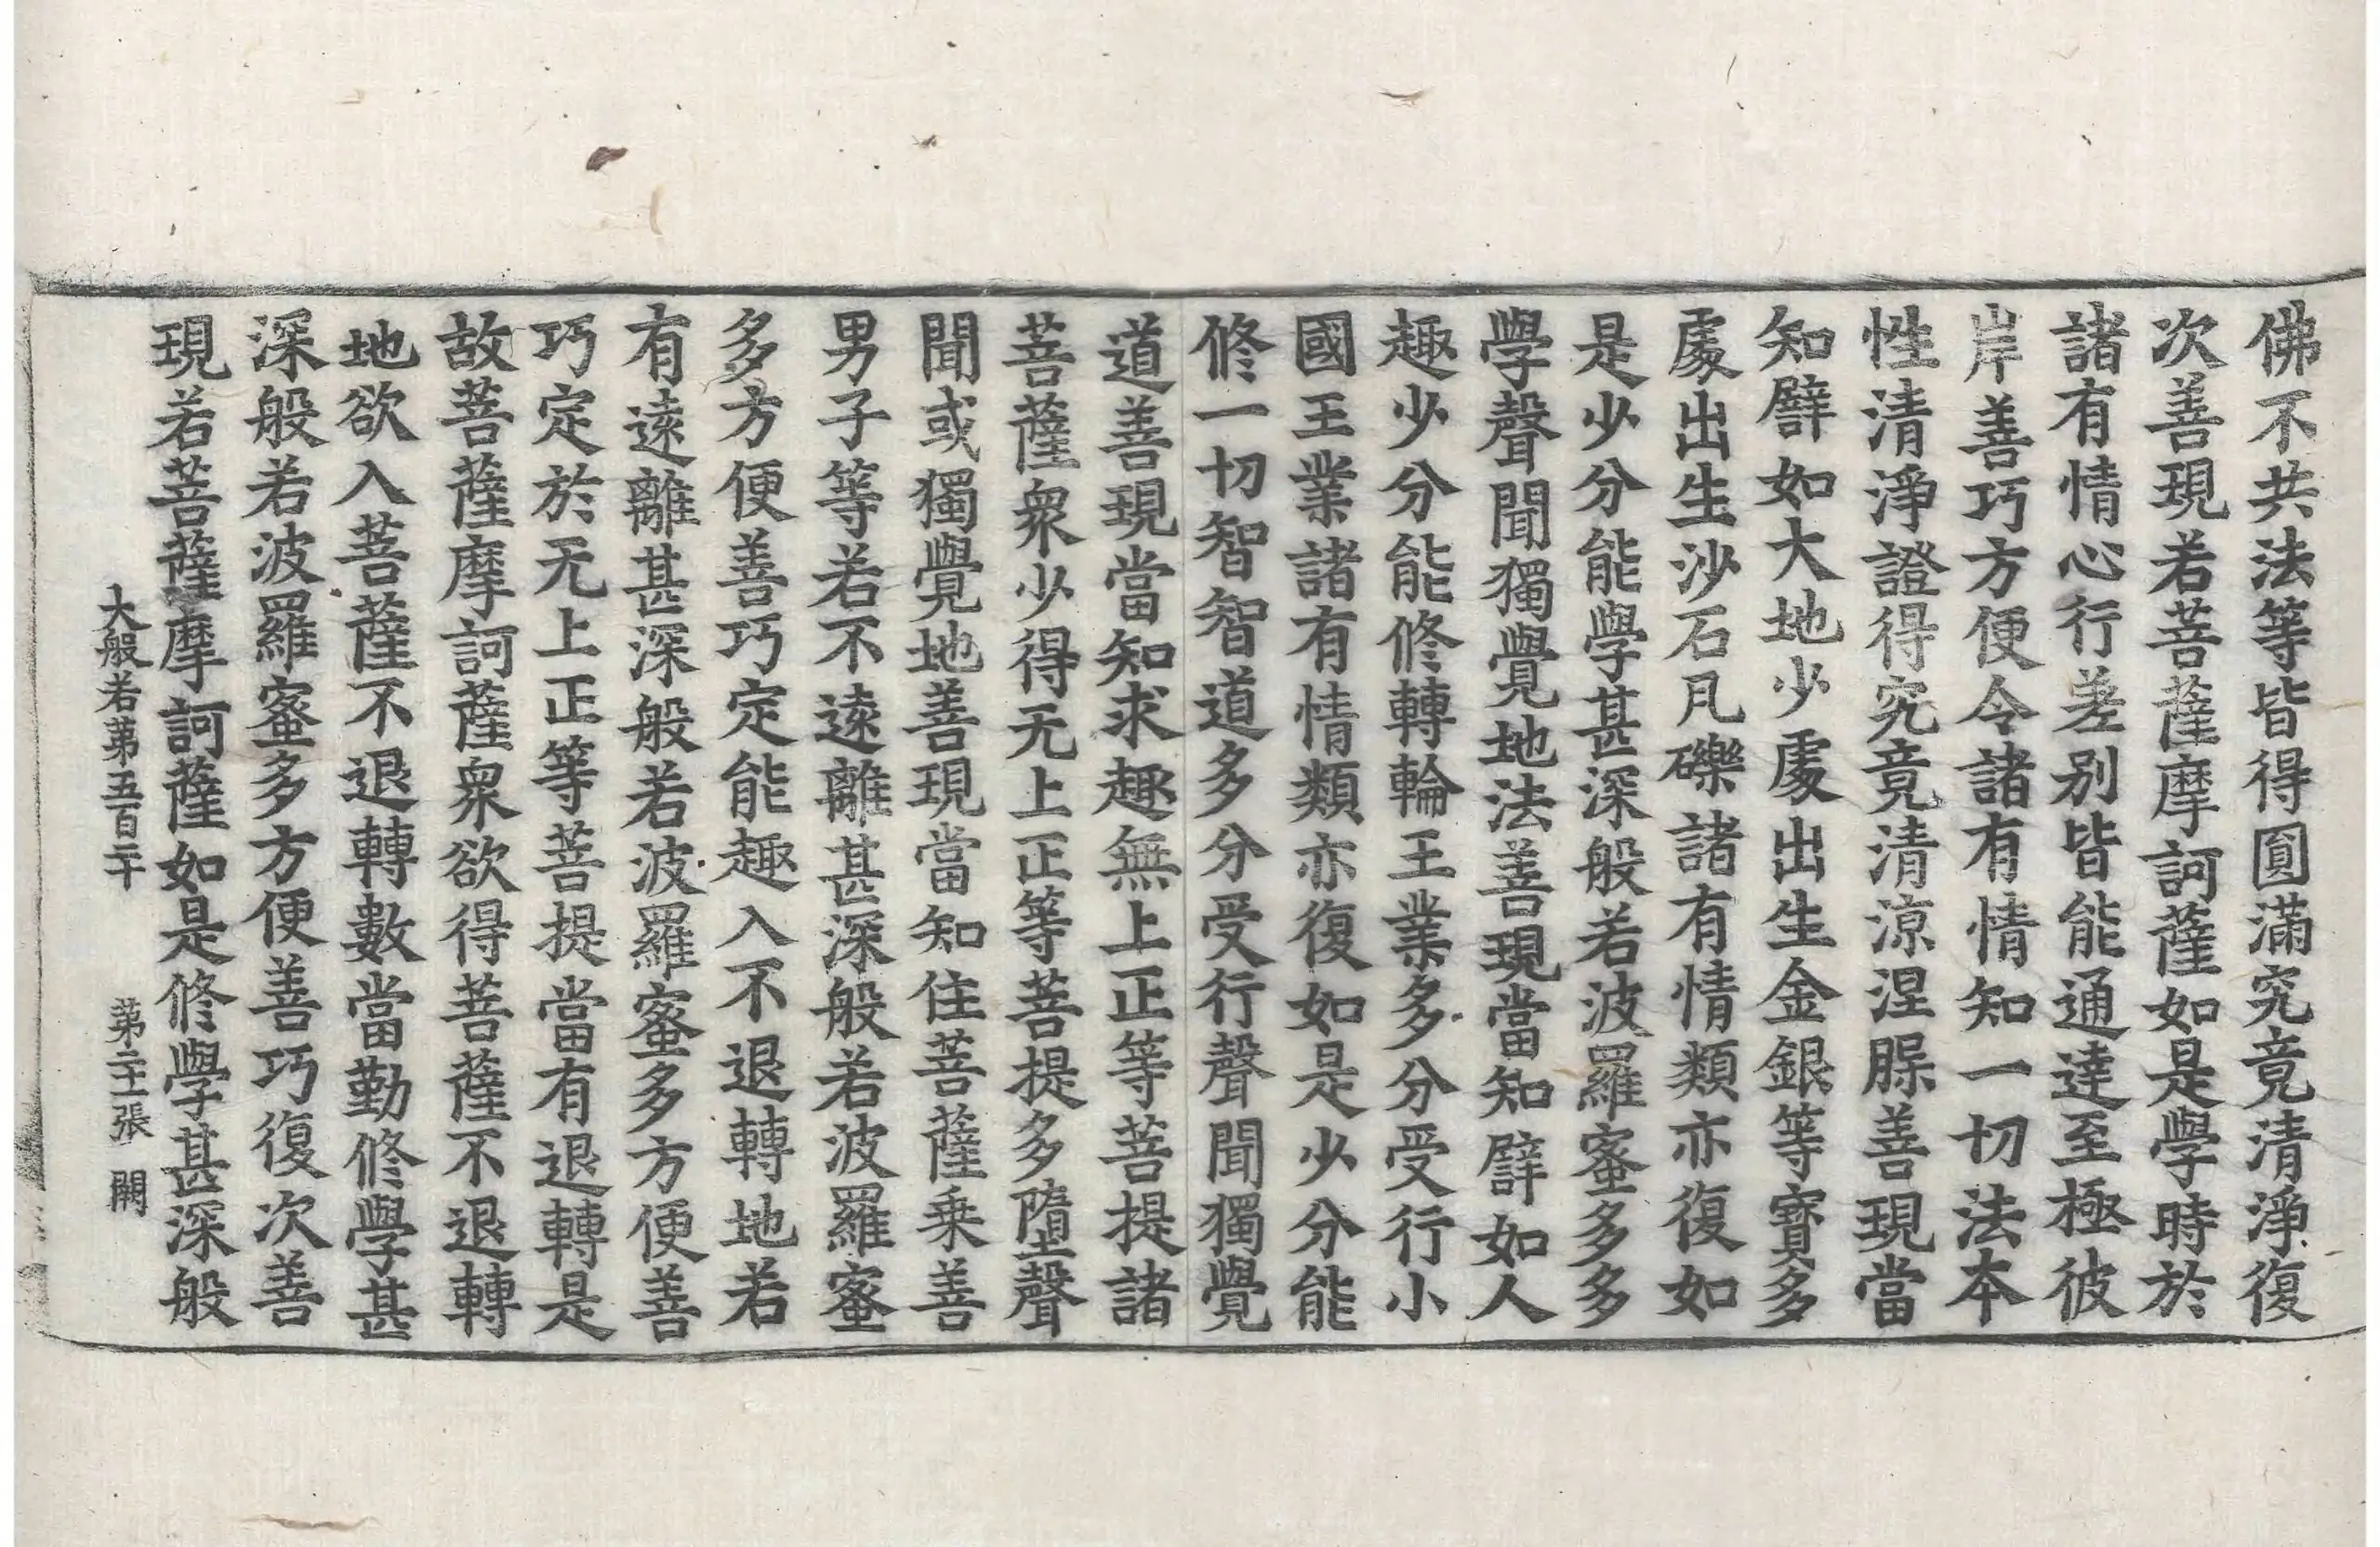 佛不共法等皆得圓滿究竟清淨復
次善現若菩薩摩訶薩如是學時於
諸有情心行差別皆能通達至極彼
岸善巧方便令諸有情知一切法本
性清淨證得究竟清涼涅脲善現當
知譬如大地少處出生金銀等寶多
處出生沙石凡礫諸有情類亦復如
是少分能學甚深般若波羅蜜多多
學聲聞獨覺地法善現當知譬如人
趣少分能修轉輪王業多分受行小
國王業諸有情類亦復如是少分能
修一切智智道多分受行聲聞獨覺
道善現當知求趣無上正等菩提諸
菩薩眾少得无上正等菩提多墮聲
聞或獨覺地善現當知住菩薩乗善
男子等若不遠離甚深般若波羅蜜
多方便善巧定能趣入不退轉地若
有遠離甚深般若波羅蜜多方便善
巧定於无上正等菩提當有退轉是
故菩薩摩訶薩眾欲得菩薩不退轉
地欲入菩薩不退轉數當勤修學甚
深般若波羅蜜多方便善巧復次善
現若菩薩摩訶薩如是修學甚深般
大般若第五百二十 第二十一張 闕